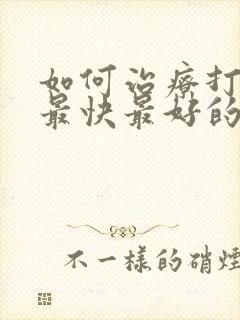 如何治療打
最快最好的
不一樣的硝煙